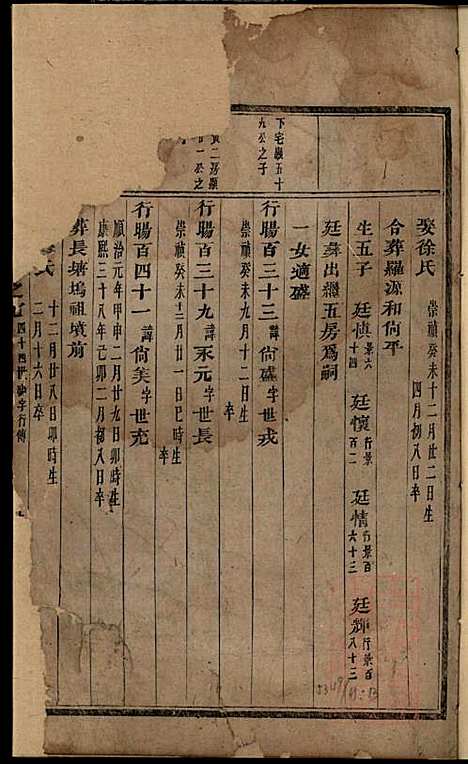 娶徐氏 崇禎癸未十二月廿二日生 四月初八日卒
合葬羅源和尙平
生五子 廷慎 景六十四 廷懷 行景百二 廷情 行景百六十三 廷 行景百八十三
廷 出繼五房爲嗣
一女適盛
下宅 五十九公之子
行賜百三十三 諱 尙盛 字 世戎
崇禎癸未九月十二日生 卒
二房 一公之
行賜百三十九 諱 永元 字 世長
崇禎癸未三月廿一日巳時生 卒
行賜百四十一 諱 尙美 字 世充
順治元年甲申二月廿九日卯時生
康熙三十八年己卯二月初八日卒
葬長塘塢祖墳前
氏 十二月廿八日卯時生 二月十六日卒
四十四 字行傳